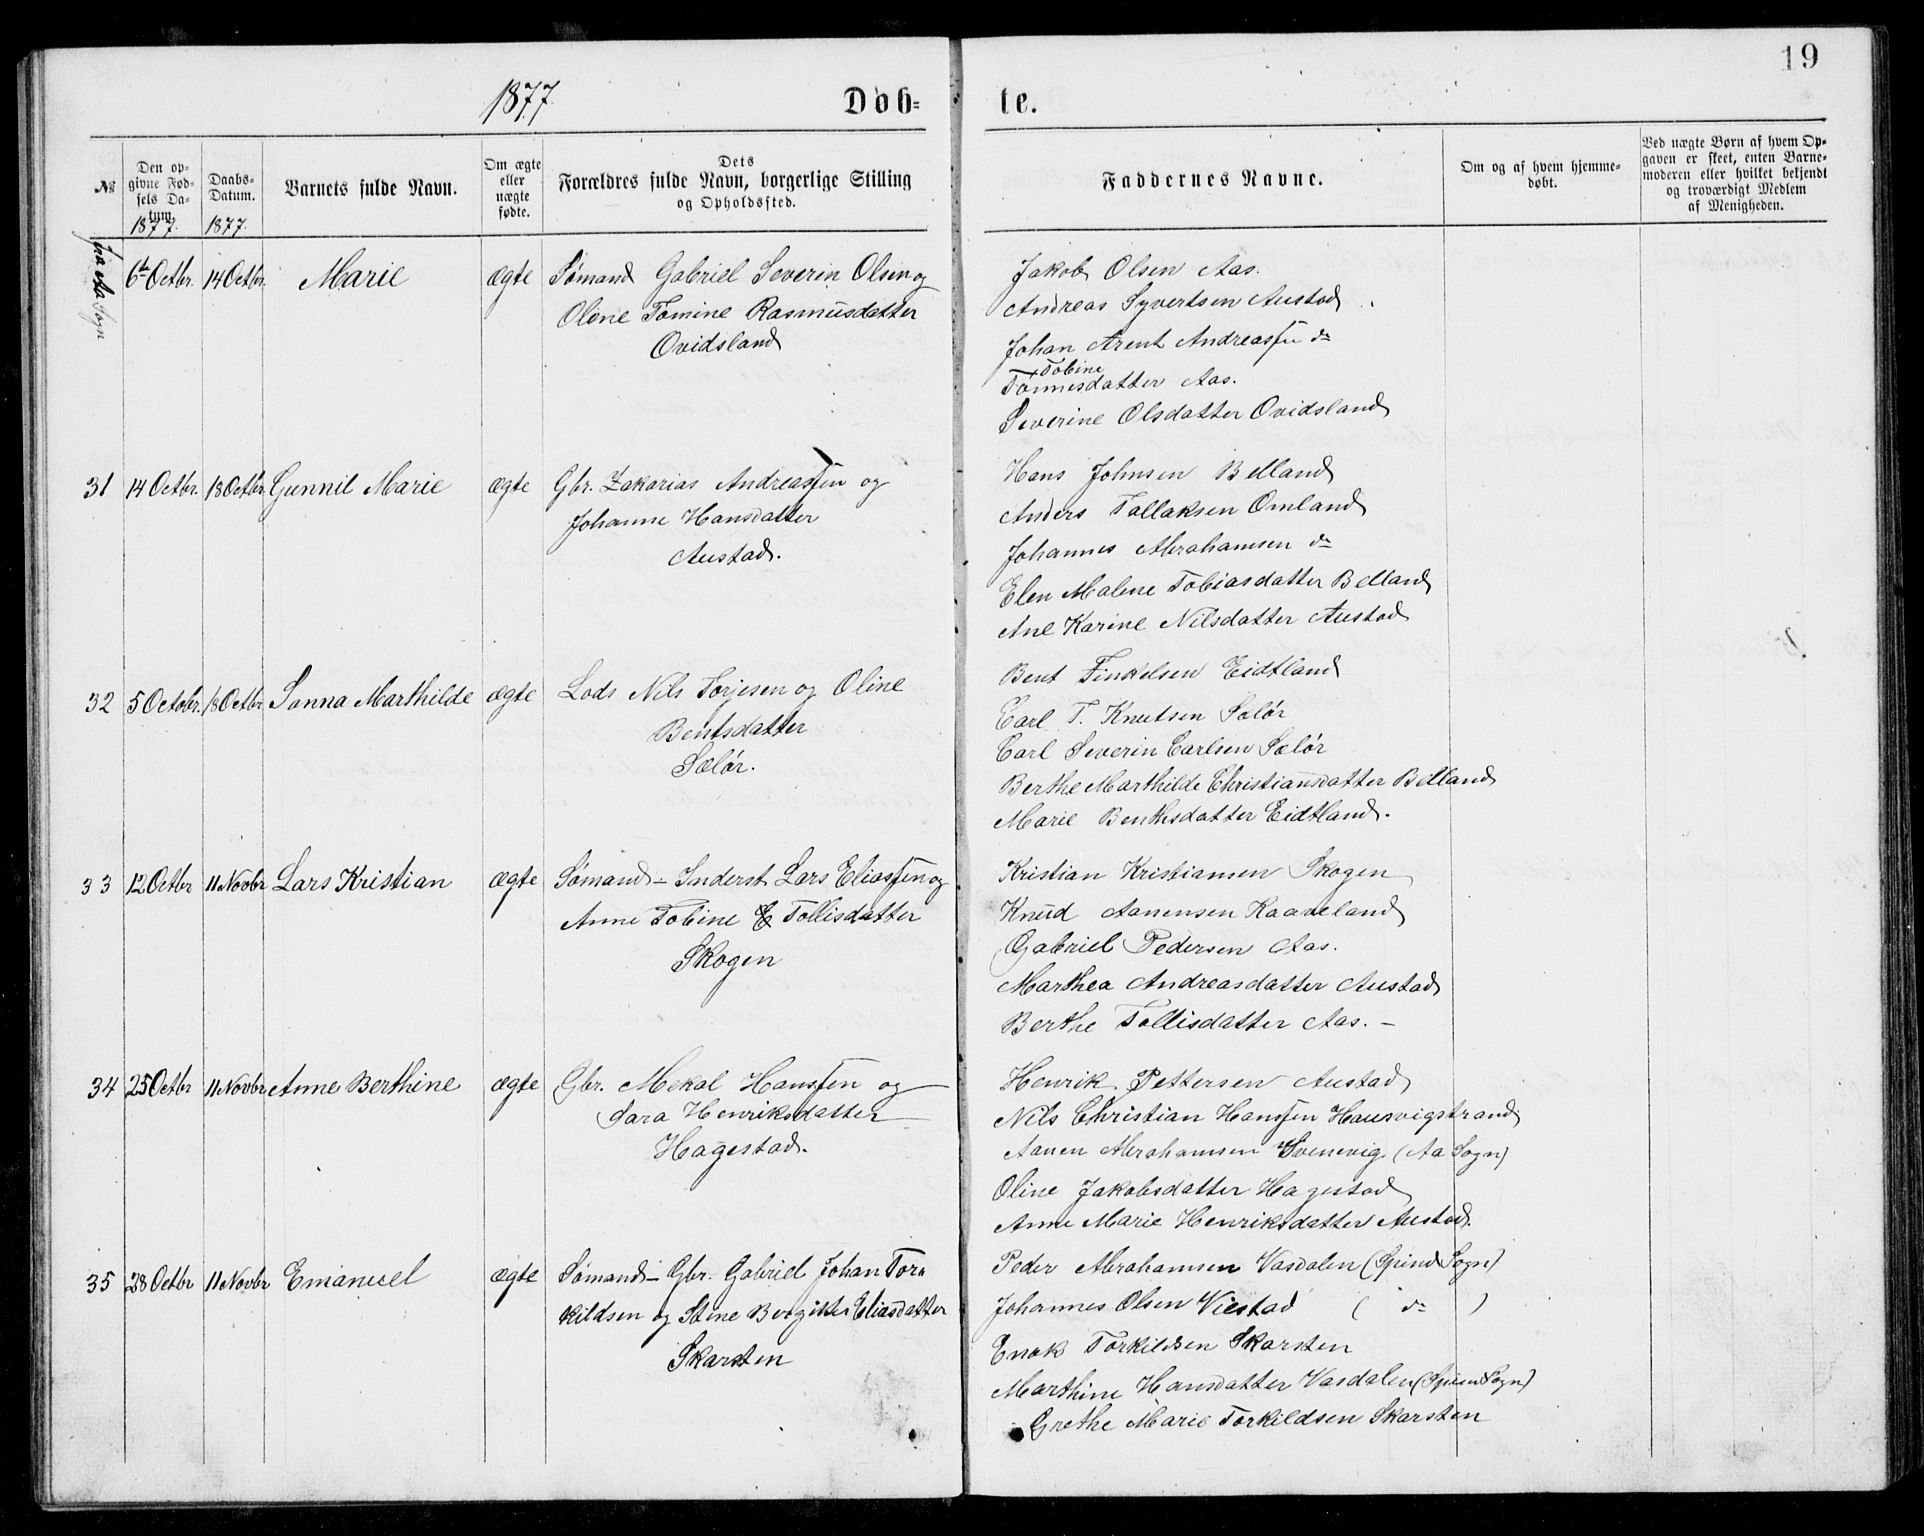 19
1877.
Døb=
te.
№
Den op-
givne Fød-
sels Da-
tum.
1877.
Daabs-
Datum.
1877.
Barnets fulde Navn.
Om ægte
eller
nægte
fødte.
Dets
Forældres fulde Navn, borgerlige Stilling
og Opholdssted.
Faddernes Navne.
Om og af hvem hjemme-
døbt.
Ved nægte Børn af hvem Op-
gaven er skeet, enten Barne-
moderen eller hvilket bekjendt
og troværdigt Medlem
af Menigheden.
fra Aa Sogn
6te Octbr. 14 Octbr. Marie ægte Sømand Gabriel Severin Olsen og
Olene Tomine Rasmusdatter
Ovidsland
Jakob Olsen Aas.
Andreas Syvertsen Austad
Johan Arent Andreassen do
Tobine
Tønnesdatter Aas.
Severine Olsdatter Ovidsland
31 14 Octbr. 18 Octbr. Gunnil Marie ægte Gbr. Zakarias Andreassen og
Johanne Hansdatter
Austad.
Hans Johnsen Belland
Anders Tollaksen Omland
Johannes Abrahamsen do
Elen Malene Tobiasdatter Belland
Ane Karine Nilsdatter Austad
32 5 Octobr. 18 Octbr. Sanna Marthilde ægte Lods Nils Torjesen og Oline
Bentsdatter
Selør.
Bent Finkelsen Eidtland
Carl T. Knutsen Selør
Carl Severin Carlsen Selør
Berthe Marthilde Christiansdatter Belland
Marie Benthsdatter Eidtland.
33 12 Octbr 11 Novbr Lars Kristian ægte Sømand - Inderst Lars Eliassen og
Anne Tobine E Tollisdatter
Skogen
Kristian Kristiansen Skogen
Knud Aanensen Kaaveland
Gabriel Pedersen Aas.
Marthea Andreasdatter Austad
Berthe Tollisdatter Aas. -
34 25 Octbr 11 Novbr Anne Berthine ægte Gbr. Mekal Hanssen og
Sara Henriksdatter
Hagestad.
Henrik Pettersen Austad
Nils Christian Hanssen Hausvigstrand
Aanen Abrahamsen Svenevig (Aa Sogn)
Oline Jakobsdatter Hagestad
Anne Marie Henriksdatter Austad.
35 28 Octbr 11 Novbr Emanuel ægte Sømand - Gbr. Gabriel Johan Tor=
kildsen og Stine Bergitte Eliasdatter
Skarsten
Peder Abrahamsen Vasdalen (Spind Sogn)
Johannes Olsen Viestad ( do )
Enok Torkildsen Skarsten
Marthine Hansdatter Vasdalen (Spind Sogn)
Grethe Marie Torkildsen Skarsten